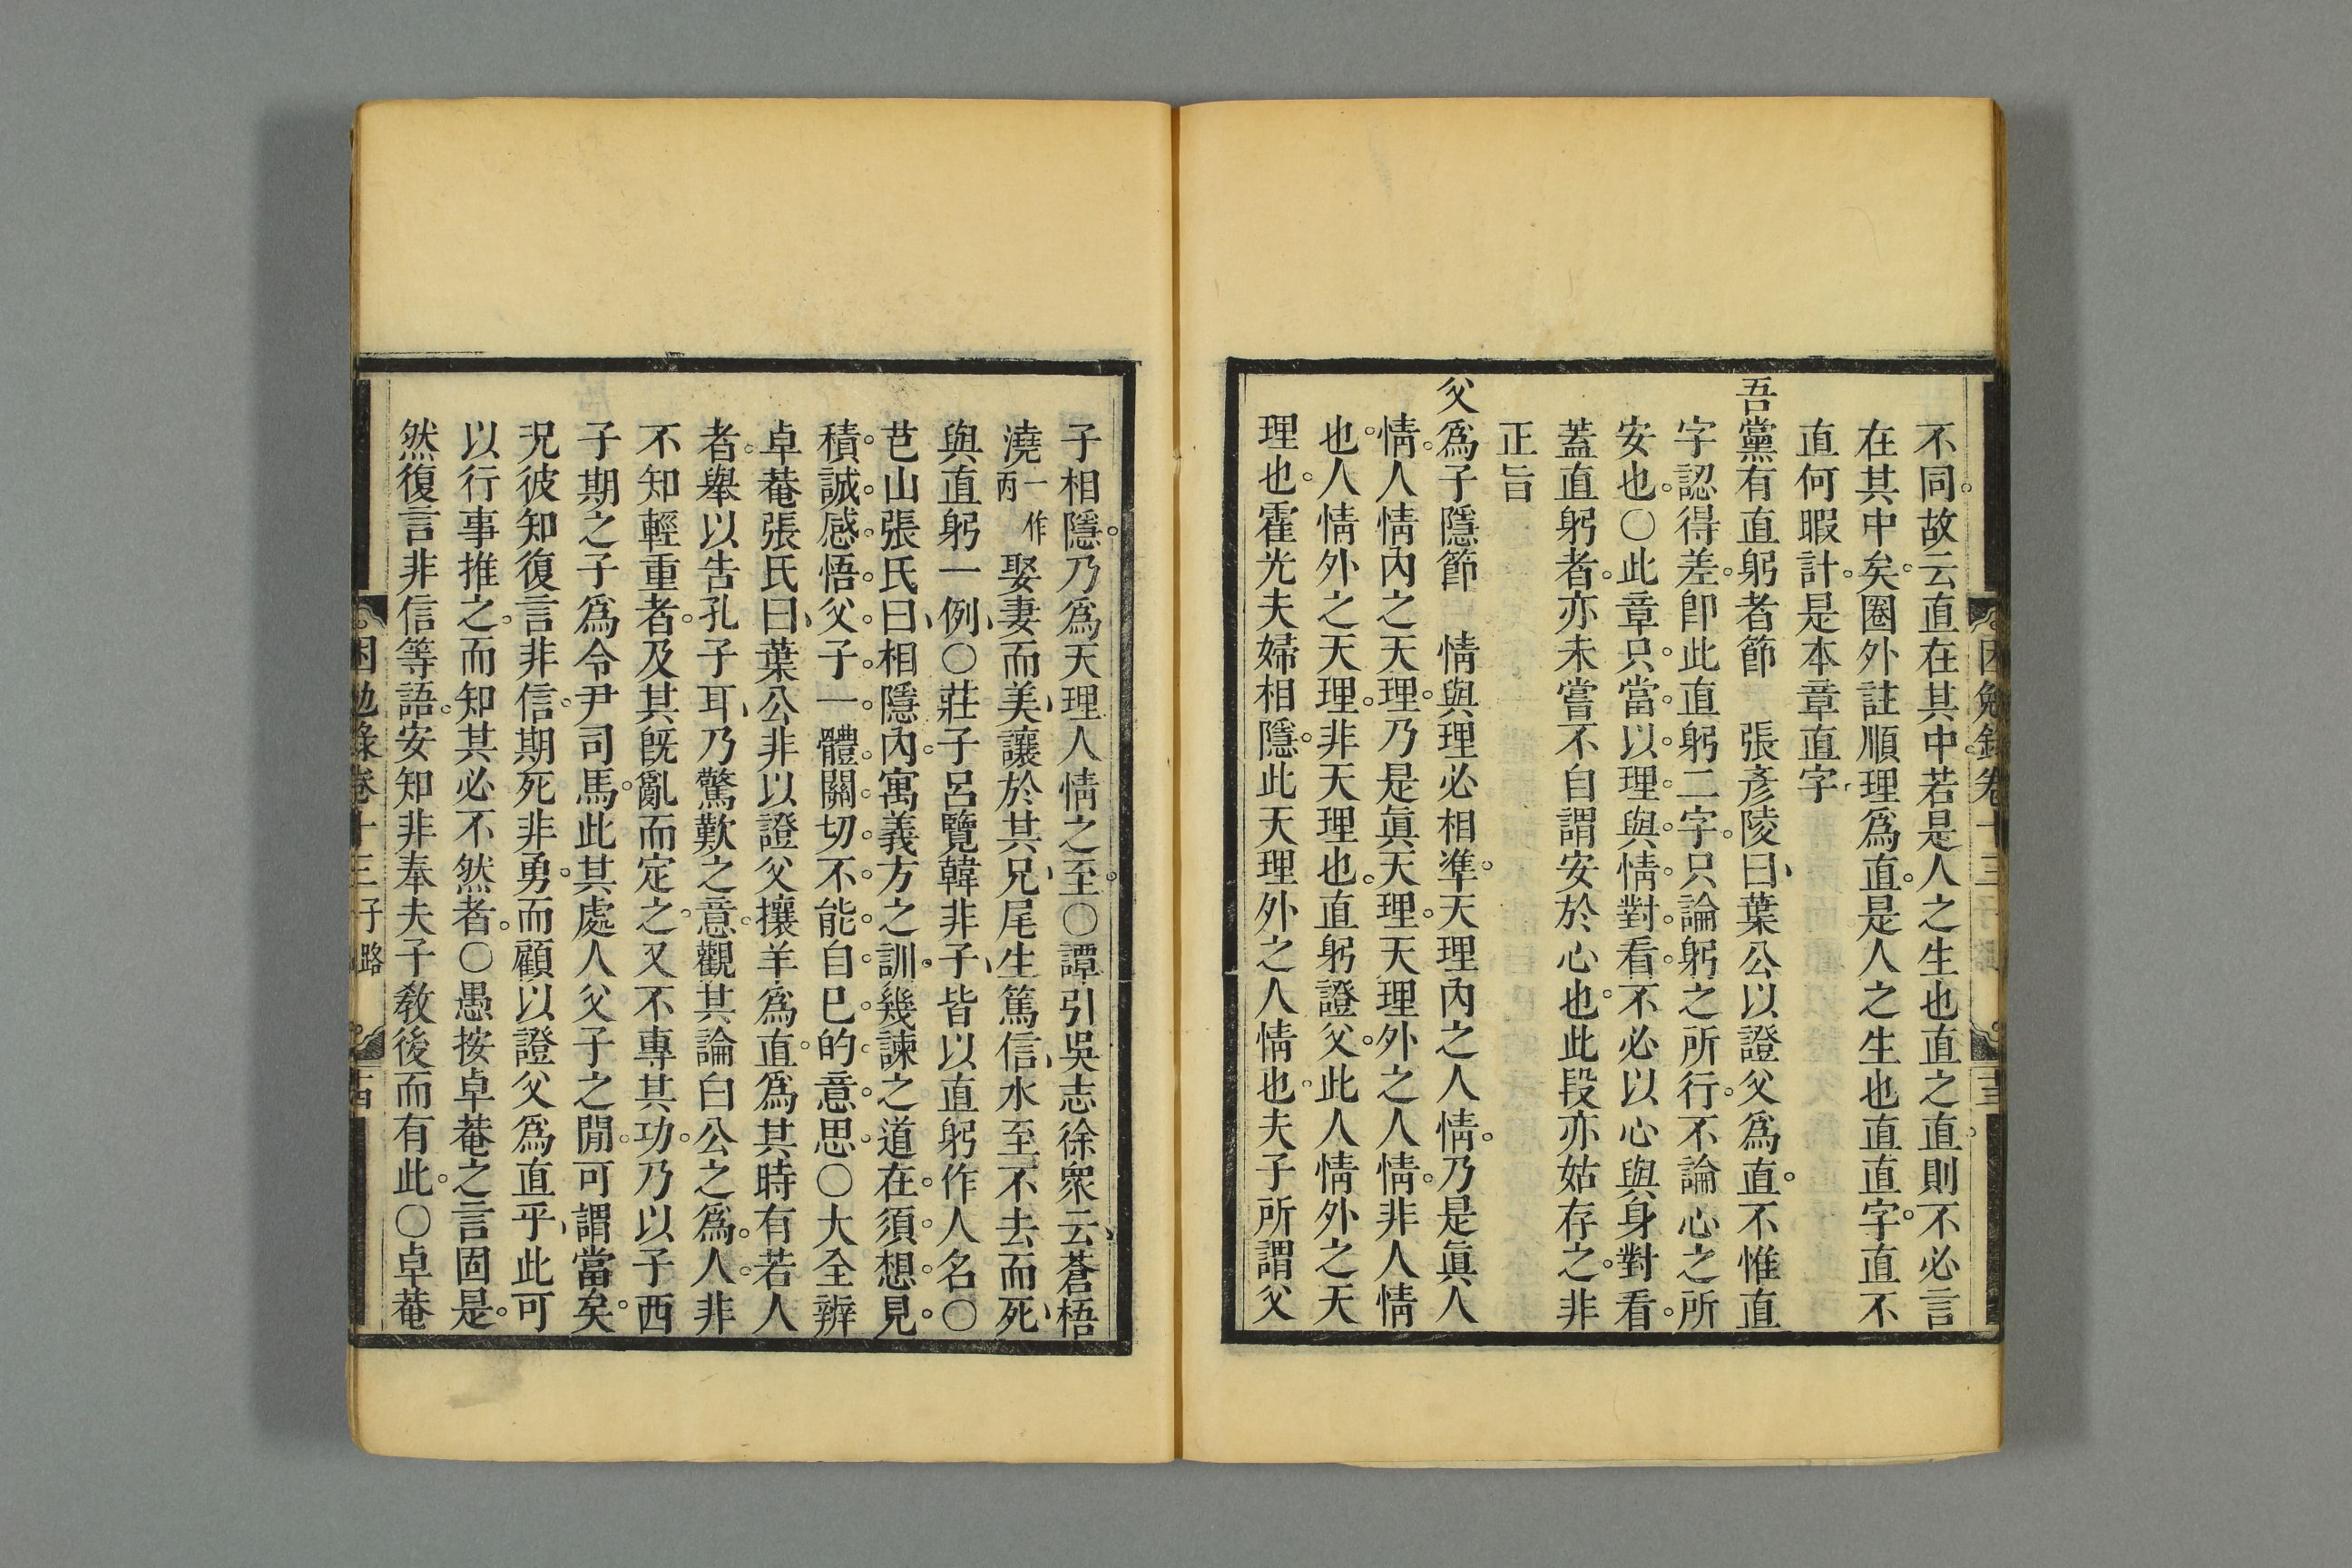 不同故云直在其中若是人之生也直之直則不必言
在其中矣圈外註順理爲直是人之生也直直字直不
直何暇計是本章直字
吾黨有直躬者節　張彥陵曰葉公以證父爲直不惟直
字認得差卽此直躬二字只論躬之所行不論心之所
安也〇此章只當以理與情對看不必以心與身對看
蓋直躬者亦未嘗不自謂安於心也此段亦姑存之非
正旨
父爲子隱節　情與理必相準天理內之人情乃是眞人
情人情內之天理乃是眞天理天理外之人情非人情
也人情外之天理非天理也直躬證父此人情外之天
理也霍光夫婦相隱此天理外之人情也夫子所謂父
子相隱乃爲天理人情之至〇譚引吳志徐衆云蒼梧
澆一作丙娶妻而美讓於其兄尾生篤信水至不去而死
與直躬一例〇莊子呂覽韓非子皆以直躬作人名〇
芑山張氏曰相隱內寓義方之訓幾諫之道在須想見
積誠感悟父子一體關切不能自已的意思〇大全辨
卓菴張氏曰葉公非以證父攘羊爲直爲其時有若人
者舉以告孔子耳乃驚歎之意觀其論白公之爲人非
不知輕重者及其旣亂而定之又不專其功乃以子西
子期之子爲令尹司馬此其處人父子之閒可謂當矣
況彼知復言非信期死非勇而顧以證父爲直乎此可
以行事推之而知其必不然者〇愚按卓菴之言固是
然復言非信等語安知非奉夫子敎後而有此〇卓菴
困勉錄卷十三子路　十四